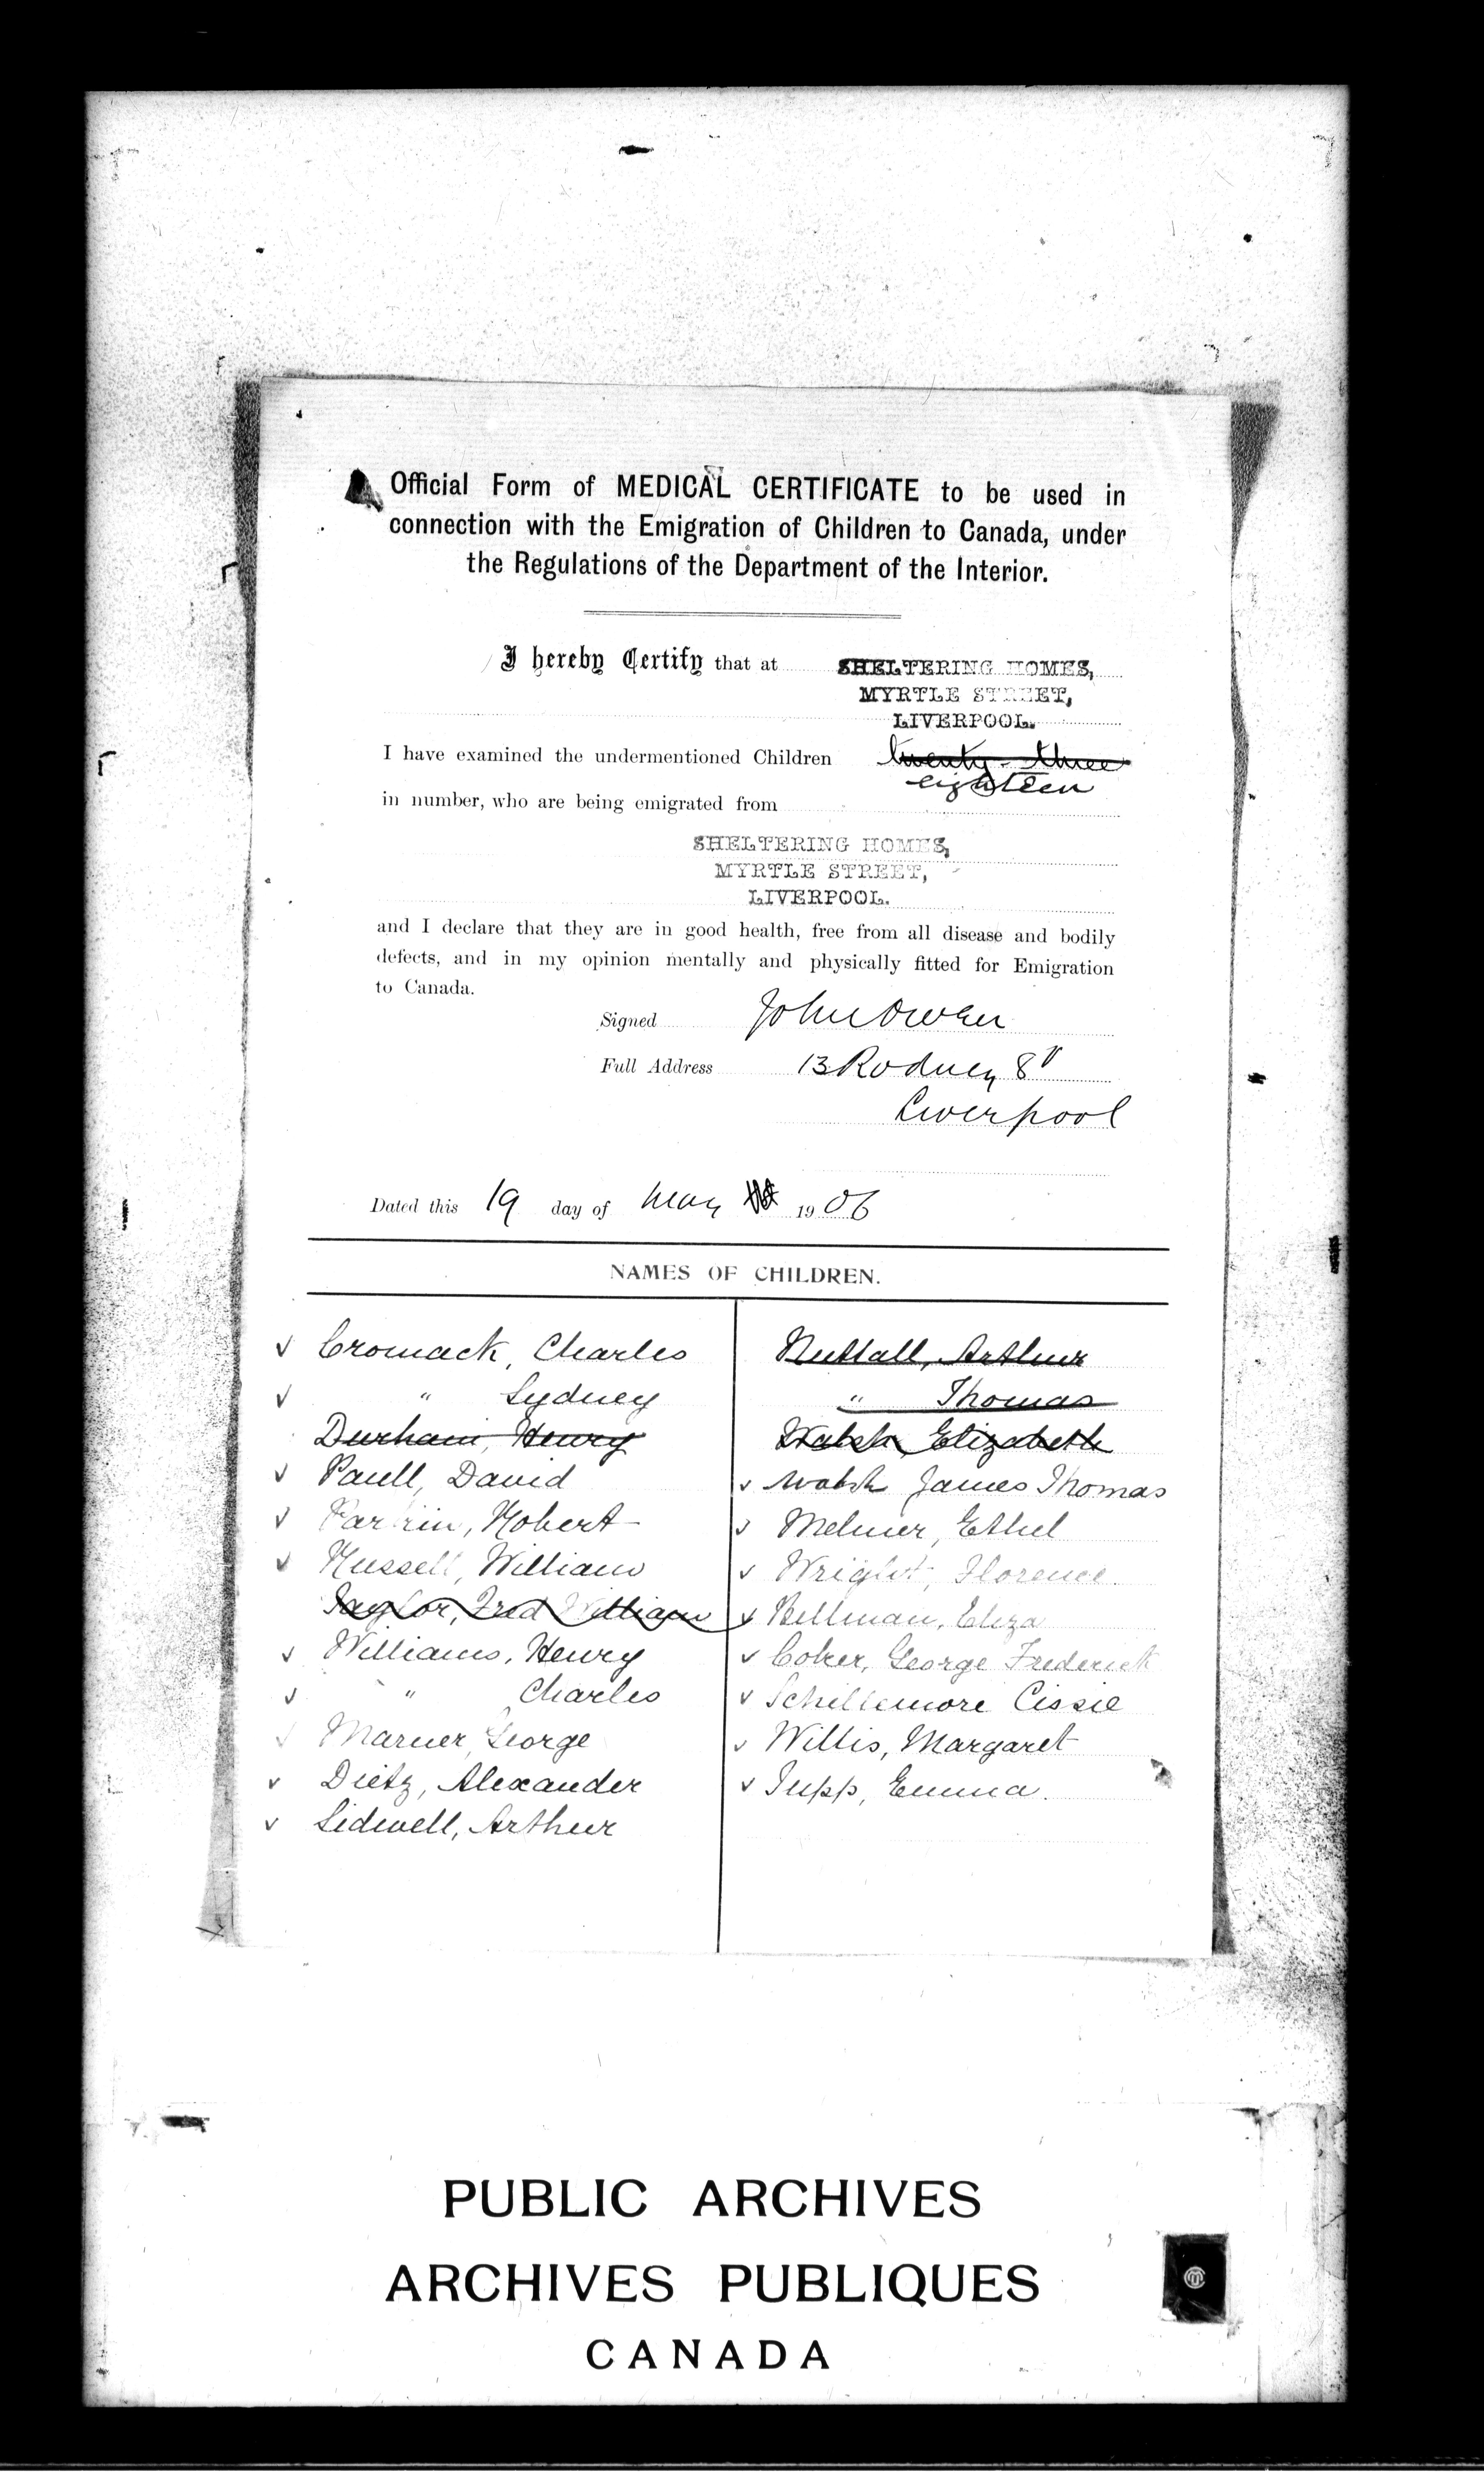 Official Form of MEDICAL CERTIFICATE to be used in
connection with the Emigration of Children to Canada, under
the Regulations of the Department of the Interior.
I hereby Certify that at SHELTERING HOMES,
MYRTLE STREET,
LIVERPOOL.
I have examined the undermentioned Children twenty-three
eighteen
in number, who are being emigrated from
SHELTERING HOMES,
MYRTLE STREET,
LIVERPOOL.
and I declare that they are in good health, free from all disease and bodily
defects, and in my opinion mentally and physically fitted for Emigration
to Canada.
Signed John Owen
Full Address 13 Rodney St
Liverpool
Dated this 19 day of May 1906
NAMES OF CHILDREN.
✓ Cromack, Charles
✓ " Sydney
Durham, Henry
✓ Paull, David
✓ Robert
✓ Russell, William
Taylor, Fred William
✓ Williams, Henry
✓ " Charles
✓ Marner, George
✓ Dietz, Alexander
✓ Sidwell, Arthur
Nuttall, Arthur
" Thomas
Walsh, Elizabeth
✓ Walsh James Thomas
✓ Melmer, Ethel
✓ Wright, Florence
✓ Bellman, Eliza
✓ Coker, George Frederick
✓ Schillemore Cissie
✓ Willis, Margaret
✓ Jupp, Emma.
PUBLIC ARCHIVES
ARCHIVES PUBLIQUES
CANADA